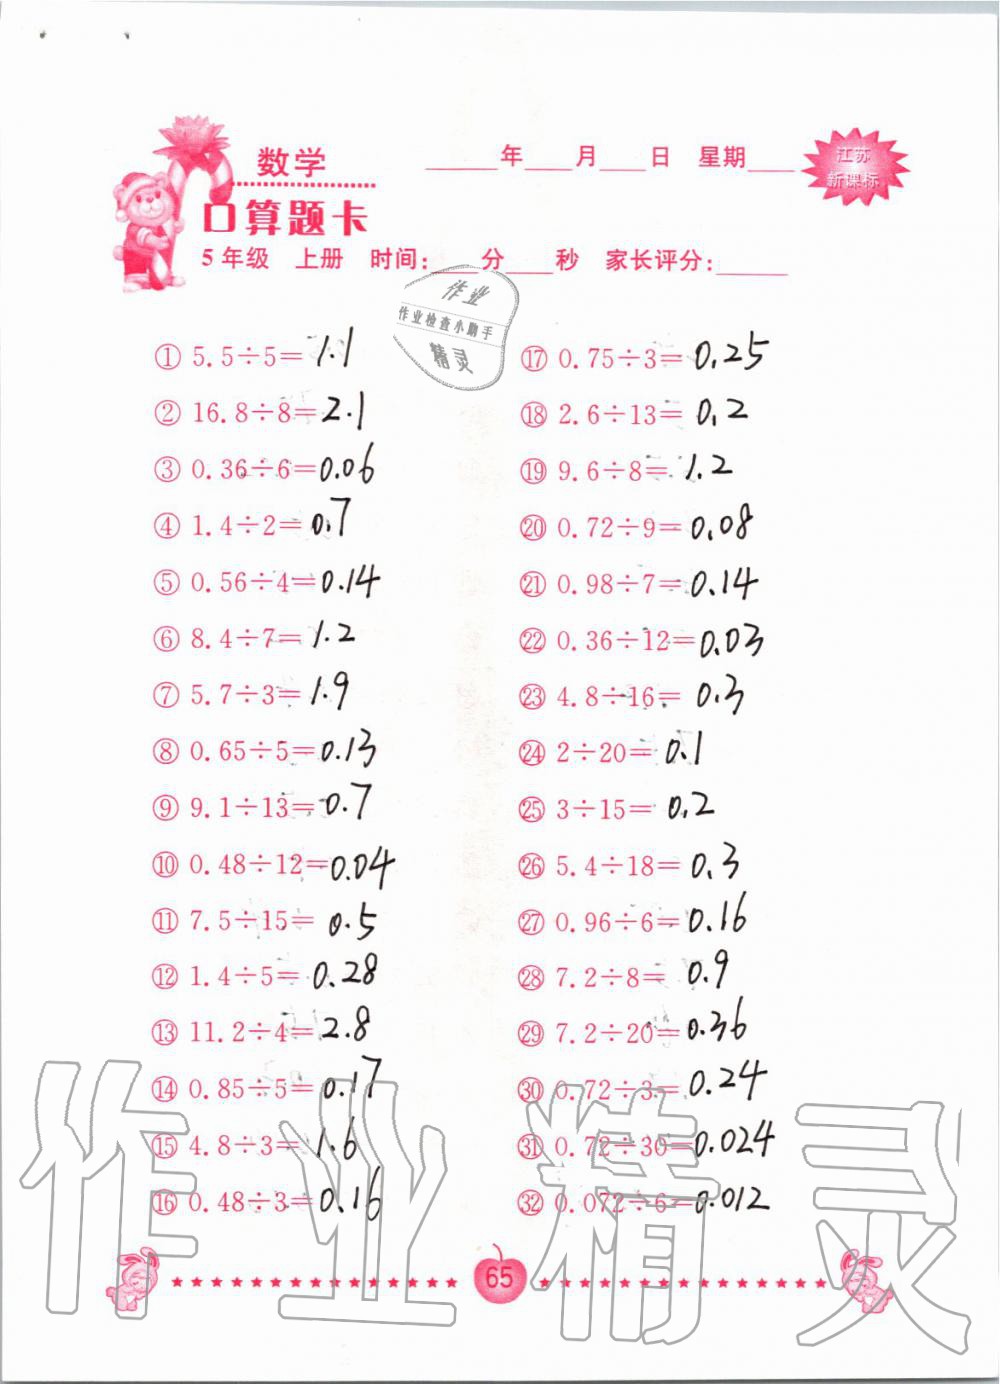 数学
____年____月____日 星期____
江苏
新课标
口算题卡
5年级 上册 时间:____分____秒 家长评分:____
作业
作业检查小助手
精灵
① 5.5÷5=1.1
② 16.8÷8=2.1
③ 0.36÷6=0.06
④ 1.4÷2=0.7
⑤ 0.56÷4=0.14
⑥ 8.4÷7=1.2
⑦ 5.7÷3=1.9
⑧ 0.65÷5=0.13
⑨ 9.1÷13=0.7
⑩ 0.48÷12=0.04
⑪ 7.5÷15=0.5
⑫ 1.4÷5=0.28
⑬ 11.2÷4=2.8
⑭ 0.85÷5=0.17
⑮ 4.8÷3=1.6
⑯ 0.48÷3=0.16
⑰ 0.75÷3=0.25
⑱ 2.6÷13=0.2
⑲ 9.6÷8=1.2
⑳ 0.72÷9=0.08
㉑ 0.98÷7=0.14
㉒ 0.36÷12=0.03
㉓ 4.8÷16=0.3
㉔ 2÷20=0.1
㉕ 3÷15=0.2
㉖ 5.4÷18=0.3
㉗ 0.96÷6=0.16
㉘ 7.2÷8=0.9
㉙ 7.2÷20=0.36
㉚ 0.72÷3=0.24
㉛ 0.72÷30=0.024
㉜ 0.072÷6=0.012
作业精灵
65